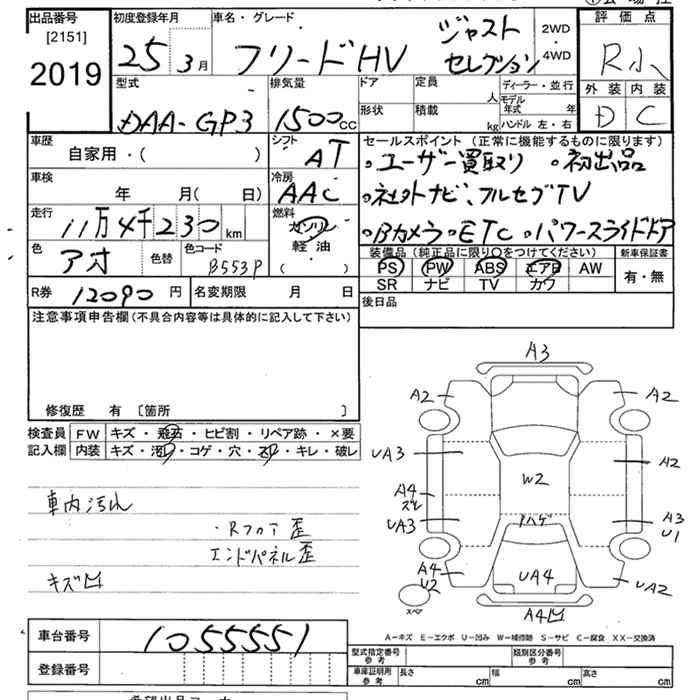 出品番号 初度登録年月 車名・グレード 評価点
[2151] ジャスト 2WD
2019 25 3月 フリードHV セレクション 4WD R小
型式 排気量 ドア 定員 人 ディーラー・並行 外装 内装
DAA-GP3 1500CC 形状 積載 kg モデル年式 年 D C
ハンドル 左・右
車歴 シフト セールスポイント (正常に機能するものに限ります)
自家用・( ) AT 。ユーザー買取り 。初出品
車検 冷房
年 月(日) AAC 。社外ナビ、フルセグTV
走行 燃料
11万4千230km ガソリン 。Bカメラ 。ETC 。パワースライドドア
色 色替 色コード 軽油
アオ B553P ( )
装備品 (純正品に限り○をつけてください) 新車保証書
PS PW ABS エアB AW 有・無
SR ナビ TV カワ
R券 12090円 名変期限 月 日 後日品
注意事項申告欄(不具合内容等は具体的に記入して下さい)
修復歴 有 [箇所 ]
検査員 FW キズ・飛石・ヒビ割・リペア跡・×要
記入欄 内装 キズ・汚れ・コゲ・穴・スレ・キレ・破レ
車内汚れ
・Rフロア歪
エンドパネル歪
キズ凹
A3
A2 A2
UA3 W2 A2
A4
ズレ
UA3 ハゲ A3
U1
A4
U2 UA4 UA2
スペア
A4凹
A-キズ E-エクボ U-凹み W-補修跡 S-サビ C-腐食 XX-交換済
車台番号 1055551 型式指定番号 参考 類別区分番号 参考
登録番号 車庫証明用 参考 長さ cm 幅 cm 高さ cm